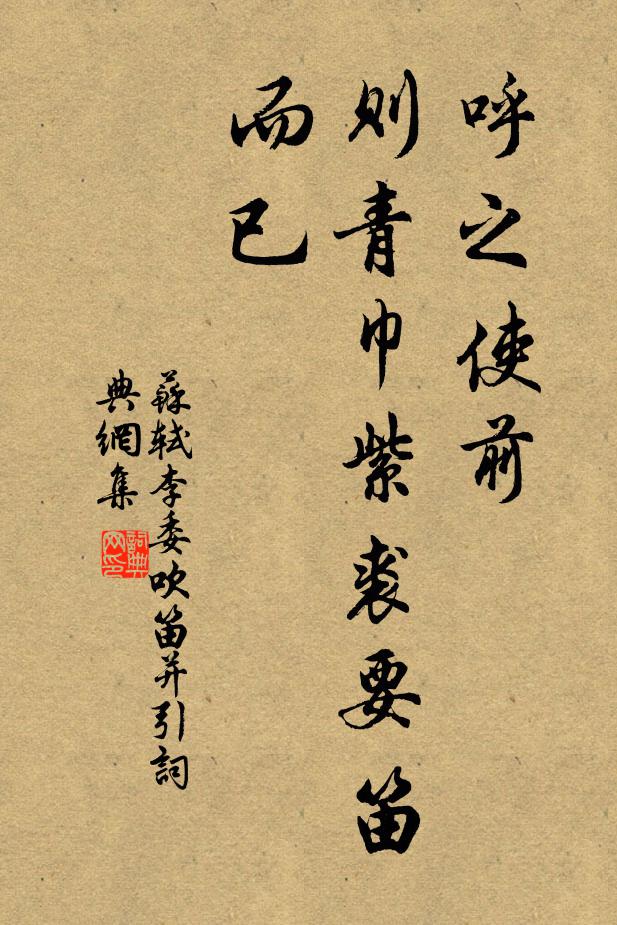 呼之使前
則青巾紫裘要笛
而已
蘇軾李委吹笛并引詞
典網集
詞典
网印